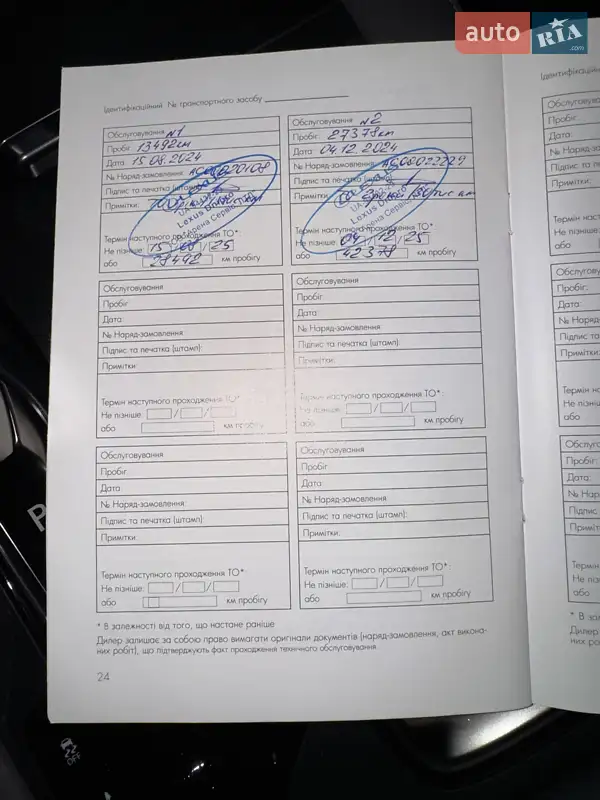 auto RIA .com
Ідентифікаційний № транспортного засобу
Обслуговування №1
Пробіг 13492км
Дата 15.08.2024
№ Наряд-замовлення:
Підпис та печатка (штамп)
Примітки:
Lexus
Термін наступного проходження ТО*:
Не пізніше: 15 / 08 / 25
або 28492 км пробігу
Обслуговування №2
Пробіг: 27378км
Дата 04.12.2024
№ Наряд-замовлення:
Підпис та печатка (штамп)
Примітки
Lexus
Термін наступного проходження ТО*:
Не пізніше: 04 / 12 / 25
або 42378 км пробігу
Обслуговування
Пробіг
Дата
№ Наряд-замовлення
Підпис та печатка (штамп):
Примітки:
Термін наступного проходження ТО*
Не пізніше: / /
або км пробігу
Обслуговування
Пробіг
Дата
№ Наряд-замовлення
Підпис та печатка (штамп):
Примітки:
Термін наступного проходження ТО*:
Не пізніше: / /
або км пробігу
Обслуговування
Пробіг
Дата
№ Наряд-замовлення:
Підпис та печатка (штамп)
Примітки:
Термін наступного проходження ТО*:
Не пізніше: / /
або км пробігу
Обслуговування
Пробіг
Дата:
№ Наряд-замовлення
Підпис та печатка (штамп):
Примітки:
Термін наступного проходження ТО*:
Не пізніше: / /
або км пробігу
* В залежності від того, що настане раніше
Дилер залишає за собою право вимагати оригінали документів (наряд-замовлення, акт викона-
них робіт), що підтверджують факт проходження технічного обслуговування
24
P
OFF